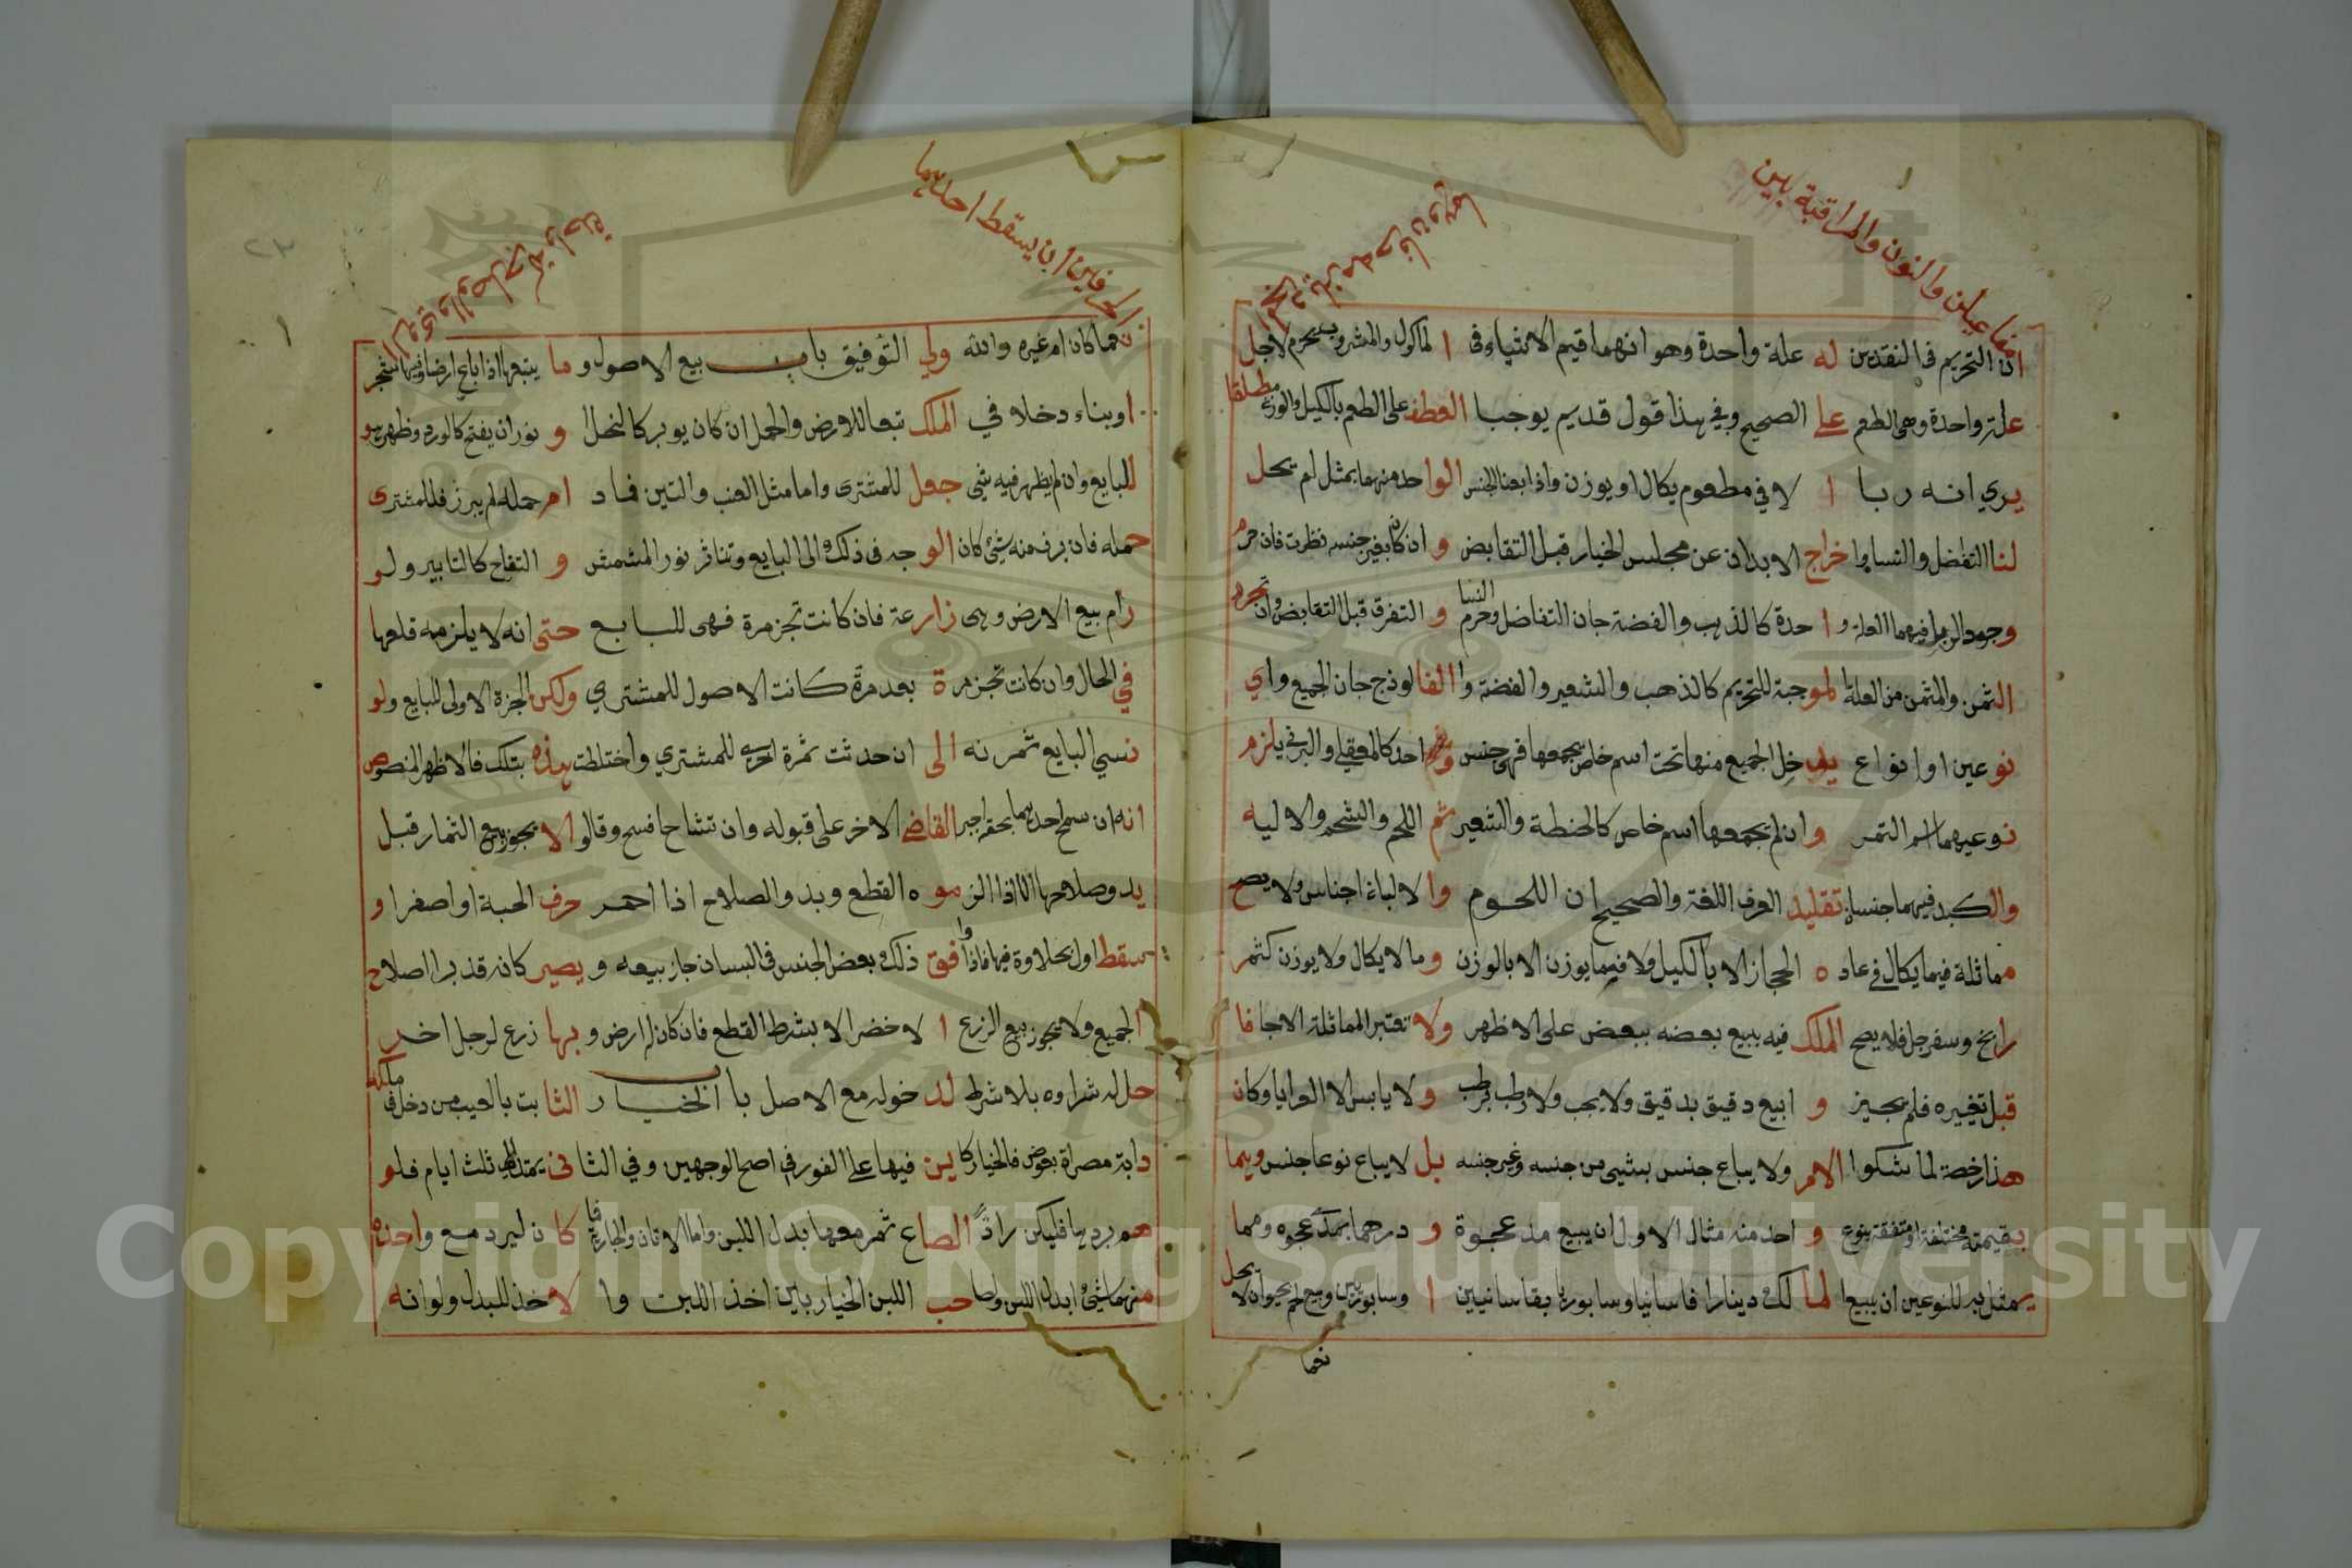 فاعيلن والنون والمراقبة بين
ان التحريم فى النقدين له علة واحدة وهو انهما قيم الاشياء وفى ا لماكول والمشروب يحرم لاجل
علة واحدة وهى الطعم على الصحيح وفي هذا قول قديم يوجب ا لعطف على الطعم بالكيل والوزن مطلقا
يرى انه ربا ا لا في مطعوم يكال او يوزن واذا ابعنا الجنس الواحد منهما بمثل لم يحل
لنا التفاضل والنسا وا خراج الابدان عن مجلس الخيار قبل التقابض و ان كان بغير جنسه نظرت فان حرم
وجود الربا فيهما العلة وا حدة كالذهب والفضة جاز التفاضل وحرم النسا و التفرق قبل التقابض وان تجرد
الثمن والمثمن من العلة ا لموجبة للتحريم كالذهب والشعير والفضة وا لفالوذج جاز الجميع واي
نوعين او انواع يدخل الجميع منها تحت اسم خاص يجمعها فهى جنس واحد كالمعقلي والبرني يلزم
نوعيهما اسم التمر و ان لم يجمعها اسم خاص كالحنطة والشعير ثم اللحم والشحم والالية
والكبد فيهما جنسان تقليد العرف اللغة والصحيح ان اللحوم وا لالباذ اجناس ولا يصح
مماثلة فيما يكال في عاد ه الحجاز الا بالكيل ولا فيما يوزن الا بالوزن وما لا يكال ولا يوزن كثمر
رانج وسفرجل فلا يصح الملك فيه ببيع بعضه ببعض على الاظهر ولا تعتبر المماثلة الا جافا
قبل تغيره فلم يجيز و ابيع دقيق بدقيق ولا بحب ولا رطب برطب و لا يابس الا العرايا وكان
هذا رخصة لما شكوا الامر ولا يباع جنس بشيى من جنسه وغير جنسه بل لا يباع نوعا جنس وهما
بقيمته مختلفة او متفقة بنوع و احد منه مثال الاول ان يبيع مد عجوة و درهما بمد عجوه ومما
يمثل به للنوعين ان يبيع ا لما لك دينارا قاسانيا وسابوريا بقاسانيين ا وسابوريين وبيع لحم بحيوان لا يحل
نحما
العرفاين ان يسقط احديهما
نحما كان ام غيره والله ولي التوفيق باب بيع الاصول و ما يتبعها اذا باع ارضا وفيها شجر
او بناء دخلا في الملك تبعا للارض والحمل ان كان يوبر كالنخل و نور ان يفتح كالورد وظهر هو
للبايع وان لم يظهر فيه شي جعل للمشترى واما مثل العنب والتين فاد ام حمله لم يبرز فللمشترى
حمله فان برز منه شئ كان الو جه فى ذلك الى البايع وتناثر نور المشمش و التفاح كالتابير ولو
رام بيع الارض وهى زارعة فان كانت تجز مرة فهى للبايع حتى انه لا يلزمه قلعها
في الحال وان كانت تجز مرة بعد مرة كانت الاصول للمشتري ولكن الجزة الاولى للبايع ولو
نسي البايع ثمرته الى ان حدثت ثمرة اخرى للمشتري واختلطت هذه بتلك فالاظهر المنصوص
انه ان سمح احدهما بحقه اجبر القاضى الاخر على قبوله وان تشاحا فسخ وقالوا لا يجوز بيع الثمار قبل
يدو صلاحها الا اذا الزموه القطع وبدو الصلاح اذا احمر حرف الحبة او اصفر او
سقط اول بحلاوة فيها فاذا وافق ذلك بعض الجنس فى البستان جاز بيعه و يصير كان قد بدا اصلاح
الجميع ولا يجوز بيع الزرع ا لاخضر الا بشرط القطع فان كان له ارض و بها زرع لرجل اخر
حل له شراوه بلا شرط لد خوله مع الاصل باب الخيار الثابت بالعيب من دخل في ملكه
دابة مصراة بعوض فالخيار كا ين فيها على الفور في اصح الوجهين وفي الثانى يمتد الى ثلث ايام فلو
هم بردها فليكن رادّ الصاع تمر معها بدل اللبن واما الاتان والجارية فا كا ن ليرد مع واحدة
منهما شئ ابدل اللبن ولصا حب اللبن الخيار باين اخذ اللبن وا لاخذ للبدل ولو انه